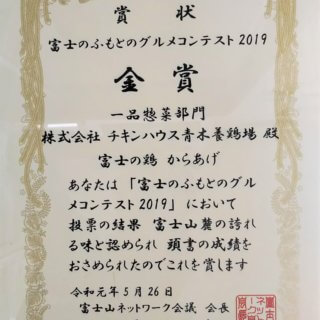 賞状
富士のふもとのグルメコンテスト2019
金賞
一品惣菜部門
株式会社 チキンハウス青木養鶏場 殿
富士の鶏 からあげ
あなたは「富士のふもとのグル
メコンテスト2019」において
投票の結果 富士山麓の誇れ
る味と認められ 頭書の成績を
おさめられたのでこれを賞します
令和元年5月26日
富士山ネットワーク会議 会長